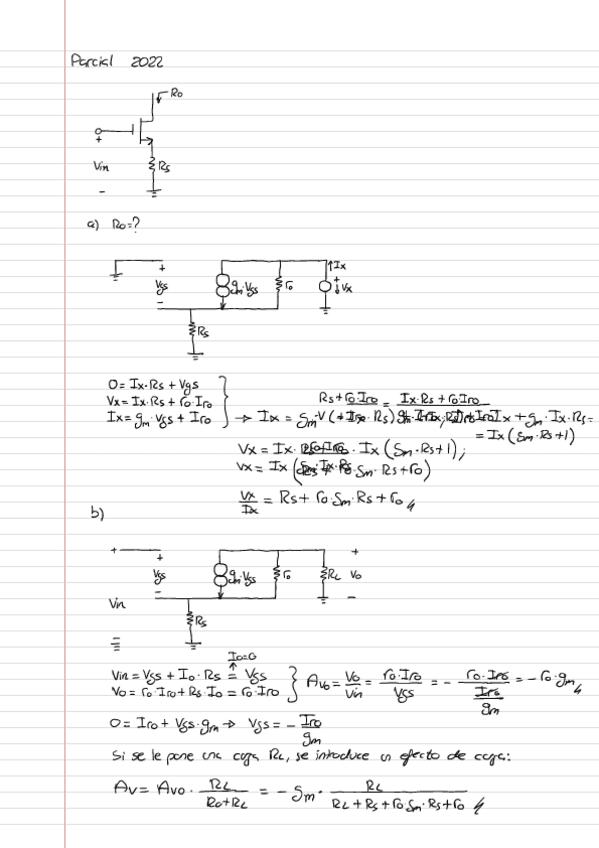 Parcial 2022
Ro
+
Vin
Rs
-
a) Ro=?
+
Vgs
-
gm·Vgs
ro
Ix
+
Vx
Rs
0 = Ix·Rs + Vgs
Vx = Ix·Rs + ro·Iro
Ix = gm·Vgs + Iro
= Ix(gm·Rs+1)
Vx = Ix ( gm·Rs+ro)
Vx/Ix = Rs + ro gm·Rs + ro
b)
+ + +
Vgs gm·Vgs ro RL Vo
- -
Vin
Rs
Io=0
Vin = Vgs + Io·Rs = Vgs
Vo = ro·Iro + Rs·Io = ro·Iro
Avo = Vo/Vin = ro·Iro/Vgs = - ro·Iro/(Iro/gm) = -ro·gm
0 = Iro + Vgs·gm → Vgs = - Iro/gm
Si se le pone una carga RL, se introduce un efecto de carga:
Av = Avo · RL/(Ro+RL) = - gm · RL/(RL + Rs + ro gm·Rs + ro)